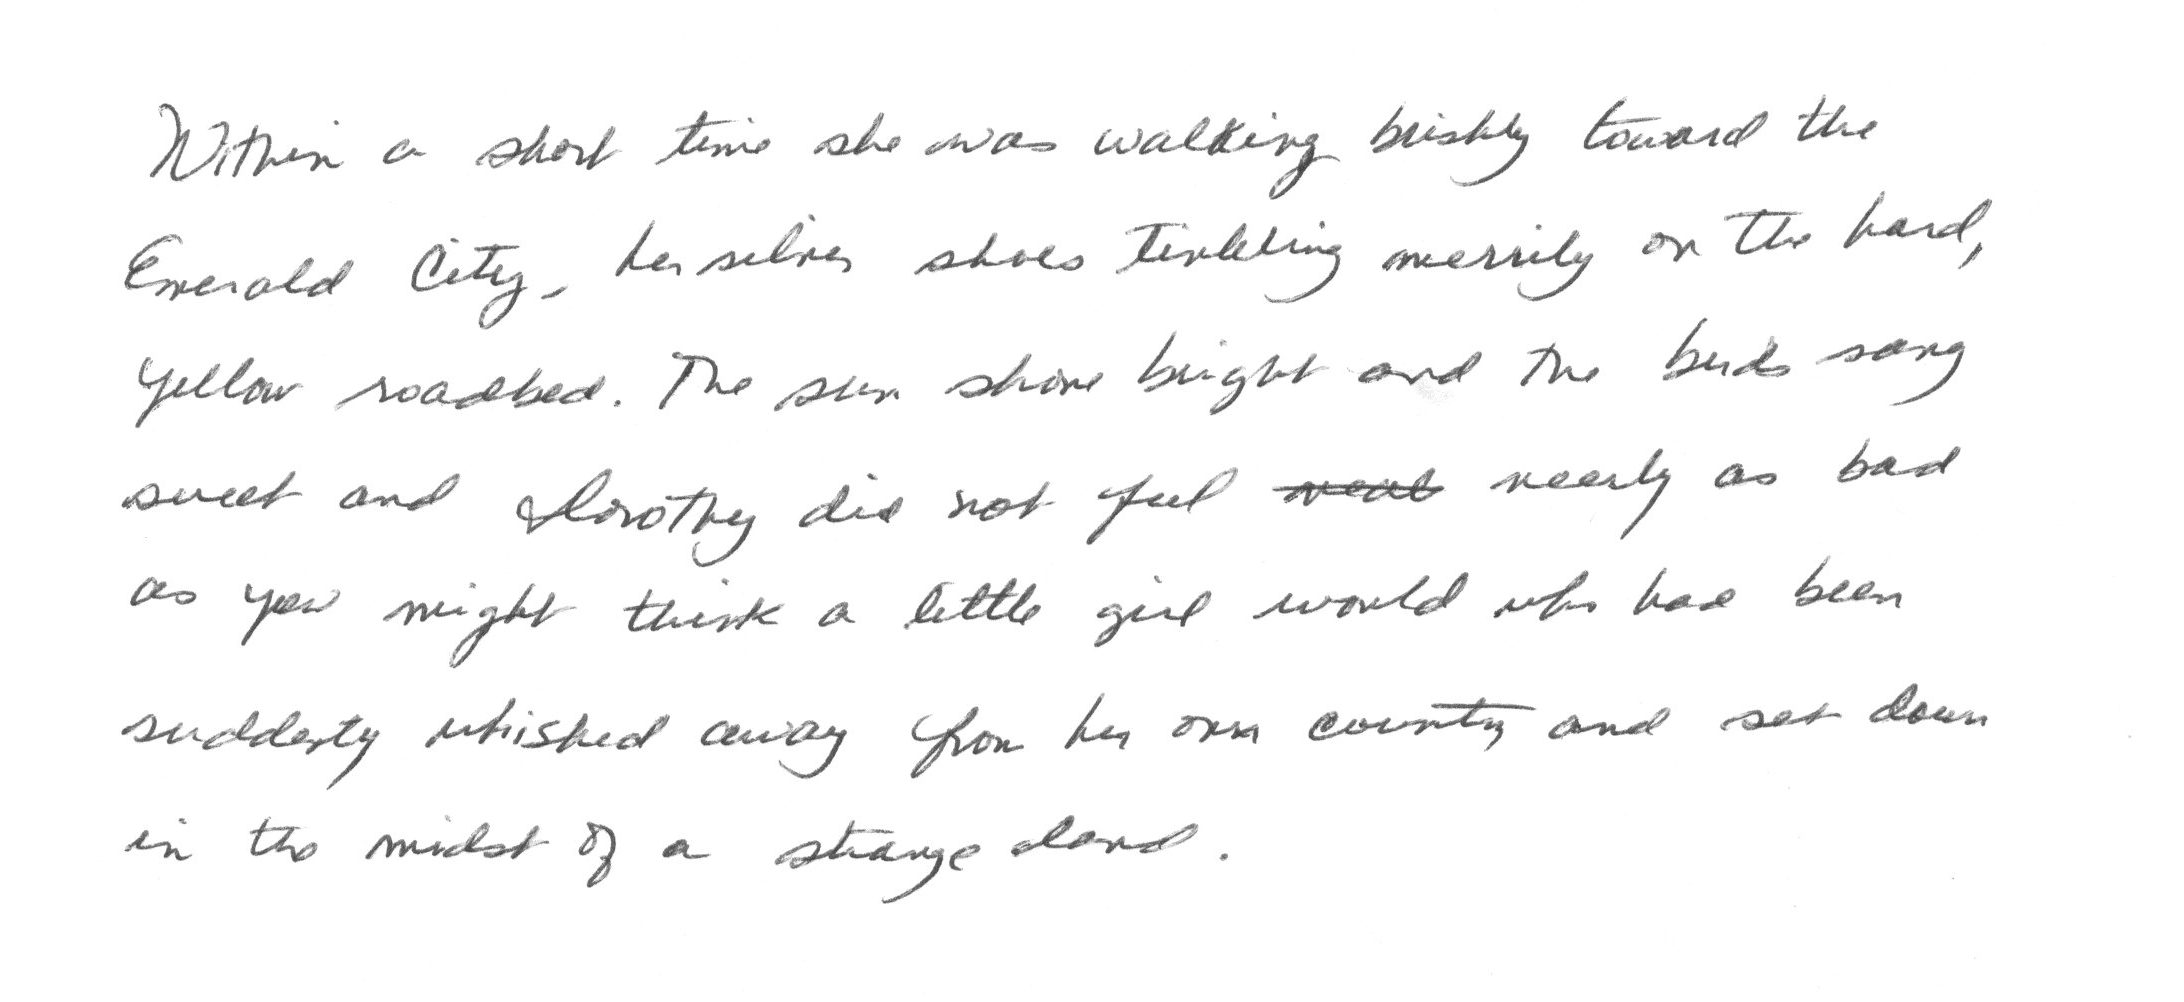 Within a short time she was walking briskly toward the
Emerald City, her silver shoes tinkling merrily on the hard,
yellow roadbed. The sun shone bright and the birds sang
sweet and Dorothy did not feel nearly as bad
as you might think a little girl would who had been
suddenly whisked away from her own country and set down
in the midst of a strange land.